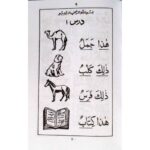 درس ۱
هٰذَا جَمَلٌ
ذٰلِكَ كَلْبٌ
ذٰلِكَ فَرَسٌ
هٰذَا كِتَابٌ